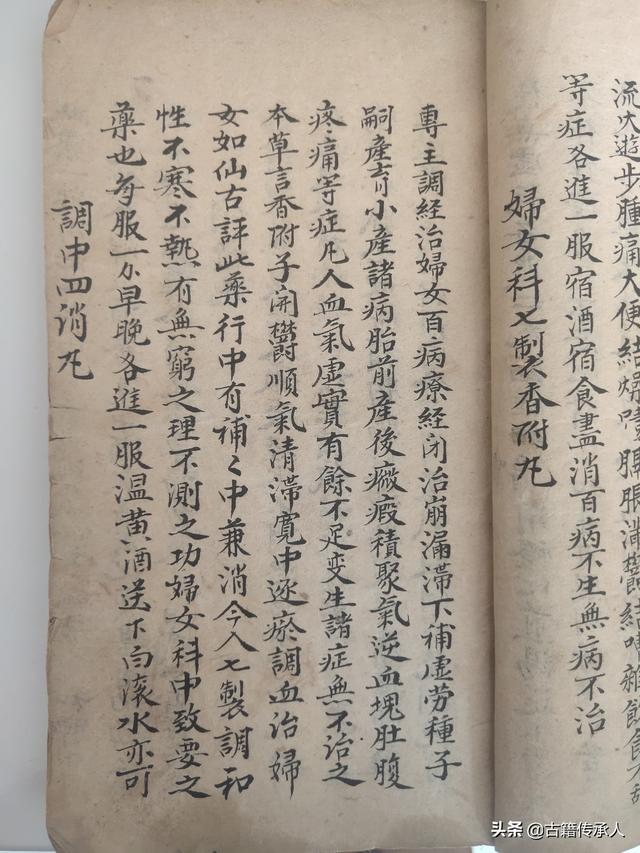 流火遊步腫痛大便結燥
等症各進一服宿酒宿食盡消百病不生無病不治
婦女科七製香附丸
專主調經治婦女百病療經闭治崩漏滞下補虛劳種子
嗣產育小產諸病胎前產後癥瘕積聚氣逆血塊肚腹
疼痛等症凡人血氣虛實有餘不足变生諸症無不治之
本草言香附子開欝順氣清滞寬中逐瘀調血治婦
女如仙古評此藥行中有補〻中兼消今入七製調和
性不寒不熱有無窮之理不測之功婦女科中致要之
藥也每服一分早晚各進一服温黄酒送下白滚水亦可
調中四消丸
头条 @古籍传承人